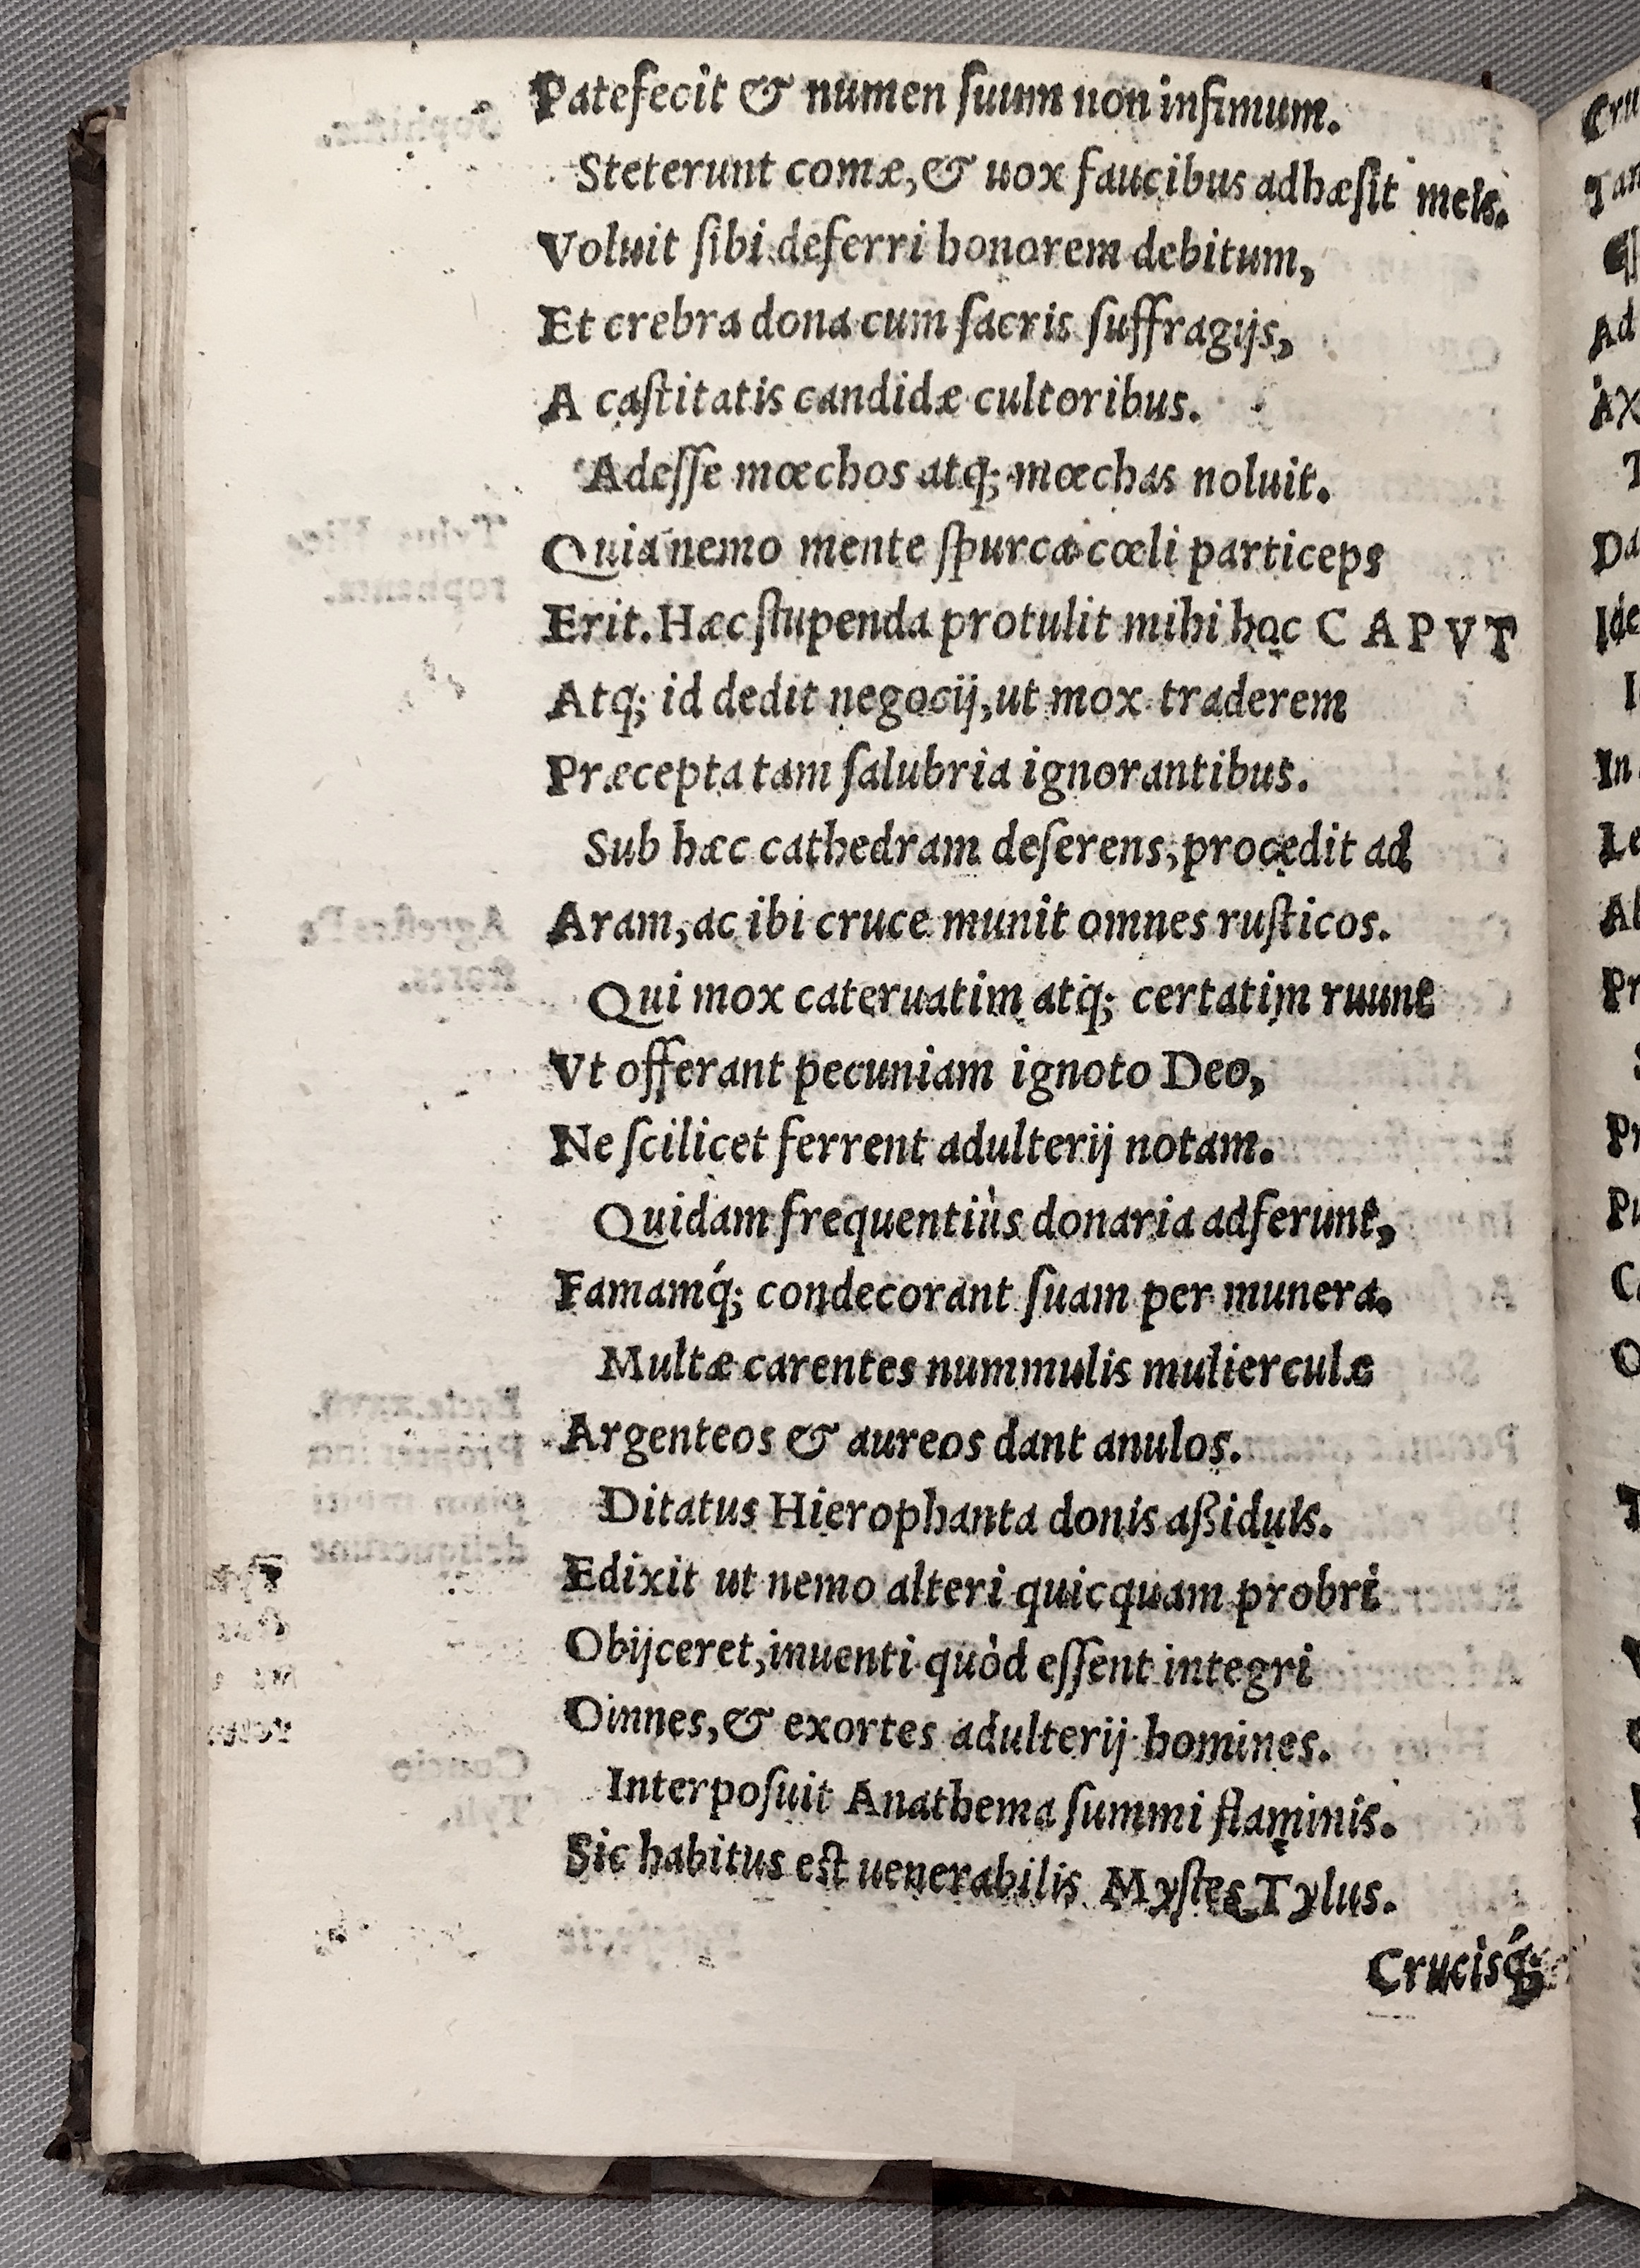 Patefecit & numen ſuum non infimum.
Steterunt comæ, & uox faucibus adhæſit meis.
Voluit ſibi deferri honorem debitum,
Et crebra dona cum ſacris ſuffragijs,
A caſtitatis candidæ cultoribus.
Adeſſe mœchos atq; mœchas noluit.
Quia nemo mente ſpurca cœli particeps
Erit. Hæc ſtupenda protulit mihi hoc CAPVT
Atq; id dedit negocij, ut mox traderem
Præcepta tam ſalubria ignorantibus.
Sub hæc cathedram deſerens, procedit ad
Aram, ac ibi cruce munit omnes ruſticos.
Qui mox cateruatim atq; certatim ruunt
Vt offerant pecuniam ignoto Deo,
Ne ſcilicet ferrent adulterij notam.
Quidam frequentiùs donaria adferunt,
Famamq́; condecorant ſuam per munera.
Multæ carentes nummulis mulierculæ
Argenteos & aureos dant anulos.
Ditatus Hierophanta donis aßiduis.
Edixit ut nemo alteri quicquam probri
Obijceret, inuenti quòd eſſent integri
Omnes, & exortes adulterij homines.
Interpoſuit Anathema ſummi flaminis.
Sic habitus eſt uenerabilis Myſtes Tylus.
Crucisq́;